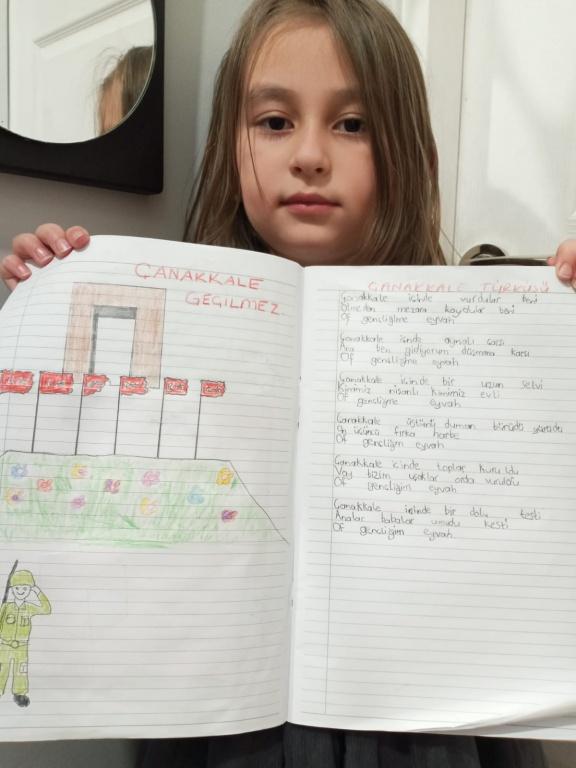 ÇANAKKALE
GEÇİLMEZ
ÇANAKKALE TÜRKÜSÜ
Çanakkale içinde vurdular beni
Ölmeden mezara koydular beni
Of gençliğime eyvah
Çanakkale içinde aynalı çarşı
Ana ben gidiyorum düşmana karşı
Of gençliğime eyvah
Çanakkale içinde bir uzun selvi
Kimimiz nişanlı kimimiz evli
Of gençliğime eyvah
Çanakkale üstünü duman bürüdü
On üçüncü fırka harbe
Of gençliğim eyvah
Çanakkale içinde toplar kuruldu
Vay bizim uşaklar orda vuruldu
Of gençliğim eyvah
Çanakkale içinde bir dolu testi
Analar babalar umudu kesti
Of gençliğim eyvah